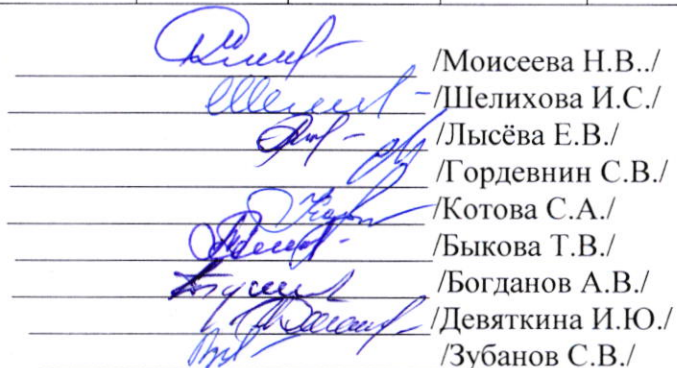 /Моисеева Н.В../
/Шелихова И.С./
/Лысёва Е.В./
/Гордевнин С.В./
/Котова С.А./
/Быкова Т.В./
/Богданов А.В./
/Девяткина И.Ю./
/Зубанов С.В./